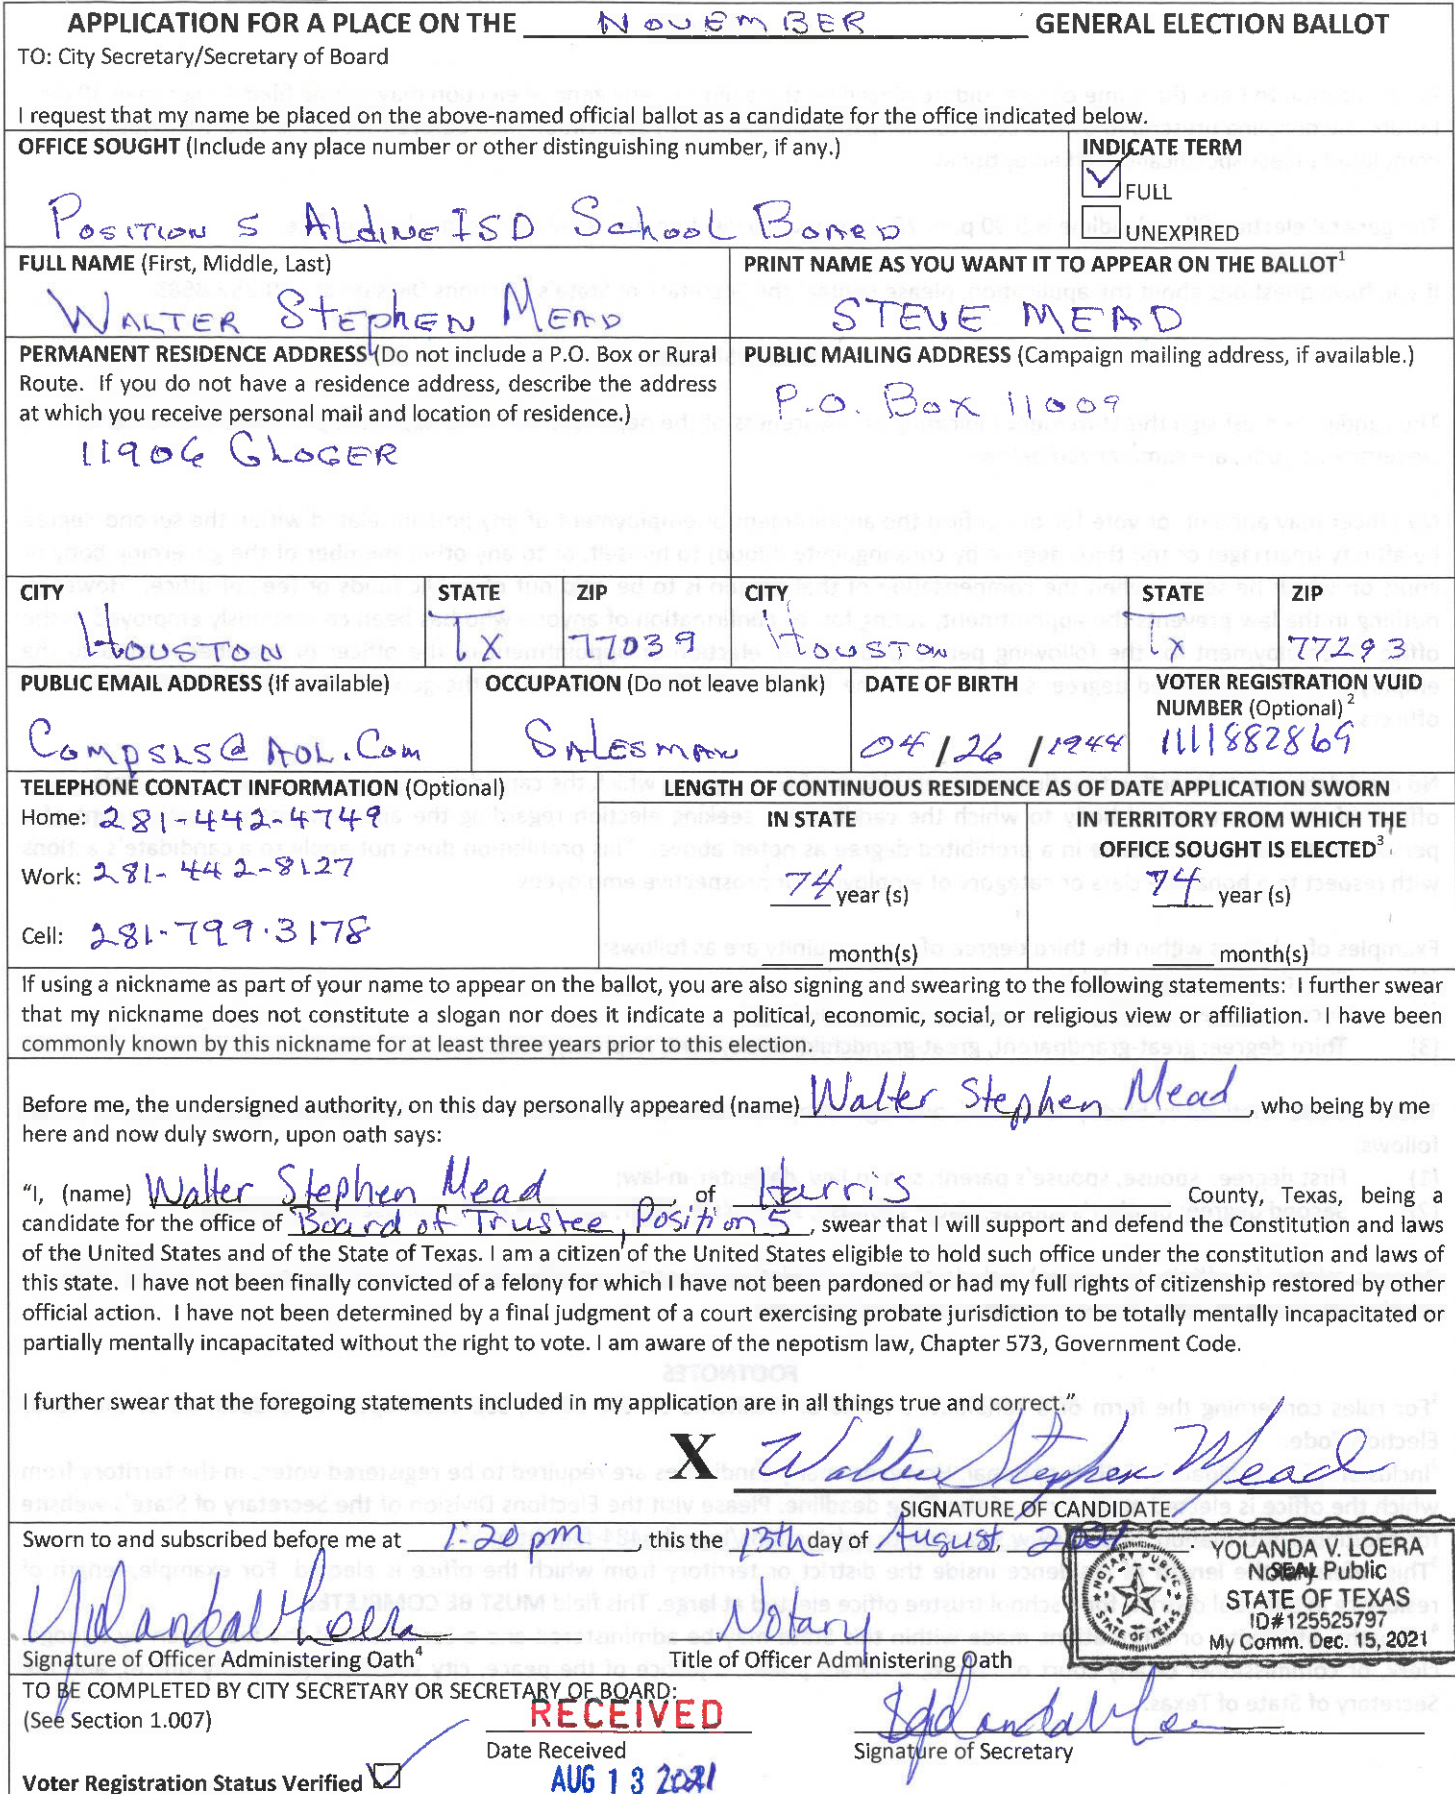 APPLICATION FOR A PLACE ON THE NOVEMBER GENERAL ELECTION BALLOT
TO: City Secretary/Secretary of Board
I request that my name be placed on the above-named official ballot as a candidate for the office indicated below.
OFFICE SOUGHT (Include any place number or other distinguishing number, if any.)
Position 5 Aldine ISD School Bored
INDICATE TERM
FULL
UNEXPIRED
FULL NAME (First, Middle, Last)
WALTER StephEN MEAD
PRINT NAME AS YOU WANT IT TO APPEAR ON THE BALLOT1
STEVE MEAD
PERMANENT RESIDENCE ADDRESS (Do not include a P.O. Box or Rural
Route. If you do not have a residence address, describe the address
at which you receive personal mail and location of residence.)
11906 GLOGER
PUBLIC MAILING ADDRESS (Campaign mailing address, if available.)
P.O. Box 11009
CITY STATE ZIP
HOUSTON TX 77039
CITY STATE ZIP
HOUSTON TX 77293
PUBLIC EMAIL ADDRESS (If available)
CompSLS@AOL.Com
OCCUPATION (Do not leave blank)
SALESMAN
DATE OF BIRTH
04/26/1944
VOTER REGISTRATION VUID
NUMBER (Optional)2
1111882869
TELEPHONE CONTACT INFORMATION (Optional)
Home: 281-442-4749
Work: 281-442-8127
Cell: 281-799-3178
LENGTH OF CONTINUOUS RESIDENCE AS OF DATE APPLICATION SWORN
IN STATE
74 year (s)
month(s)
IN TERRITORY FROM WHICH THE
OFFICE SOUGHT IS ELECTED3
74 year (s)
month(s)
If using a nickname as part of your name to appear on the ballot, you are also signing and swearing to the following statements: I further swear
that my nickname does not constitute a slogan nor does it indicate a political, economic, social, or religious view or affiliation. I have been
commonly known by this nickname for at least three years prior to this election.
Before me, the undersigned authority, on this day personally appeared (name) Walter Stephen Mead, who being by me
here and now duly sworn, upon oath says:
"I, (name) Walter Stephen Mead, of Harris County, Texas, being a
candidate for the office of Board of Trustee, Position 5, swear that I will support and defend the Constitution and laws
of the United States and of the State of Texas. I am a citizen of the United States eligible to hold such office under the constitution and laws of
this state. I have not been finally convicted of a felony for which I have not been pardoned or had my full rights of citizenship restored by other
official action. I have not been determined by a final judgment of a court exercising probate jurisdiction to be totally mentally incapacitated or
partially mentally incapacitated without the right to vote. I am aware of the nepotism law, Chapter 573, Government Code.
I further swear that the foregoing statements included in my application are in all things true and correct."
X Walter Stephen Mead
SIGNATURE OF CANDIDATE
Sworn to and subscribed before me at 1:20pm, this the 13th day of August, 2021
YOLANDA V. LOERA
Notary Public
SEAL
STATE OF TEXAS
ID#125525797
My Comm. Dec. 15, 2021
NOTARY PUBLIC
STATE OF TEXAS
Notary
Signature of Officer Administering Oath4
Title of Officer Administering Oath
TO BE COMPLETED BY CITY SECRETARY OR SECRETARY OF BOARD:
(See Section 1.007)
RECEIVED
Date Received
AUG 13 2021
Signature of Secretary
Voter Registration Status Verified